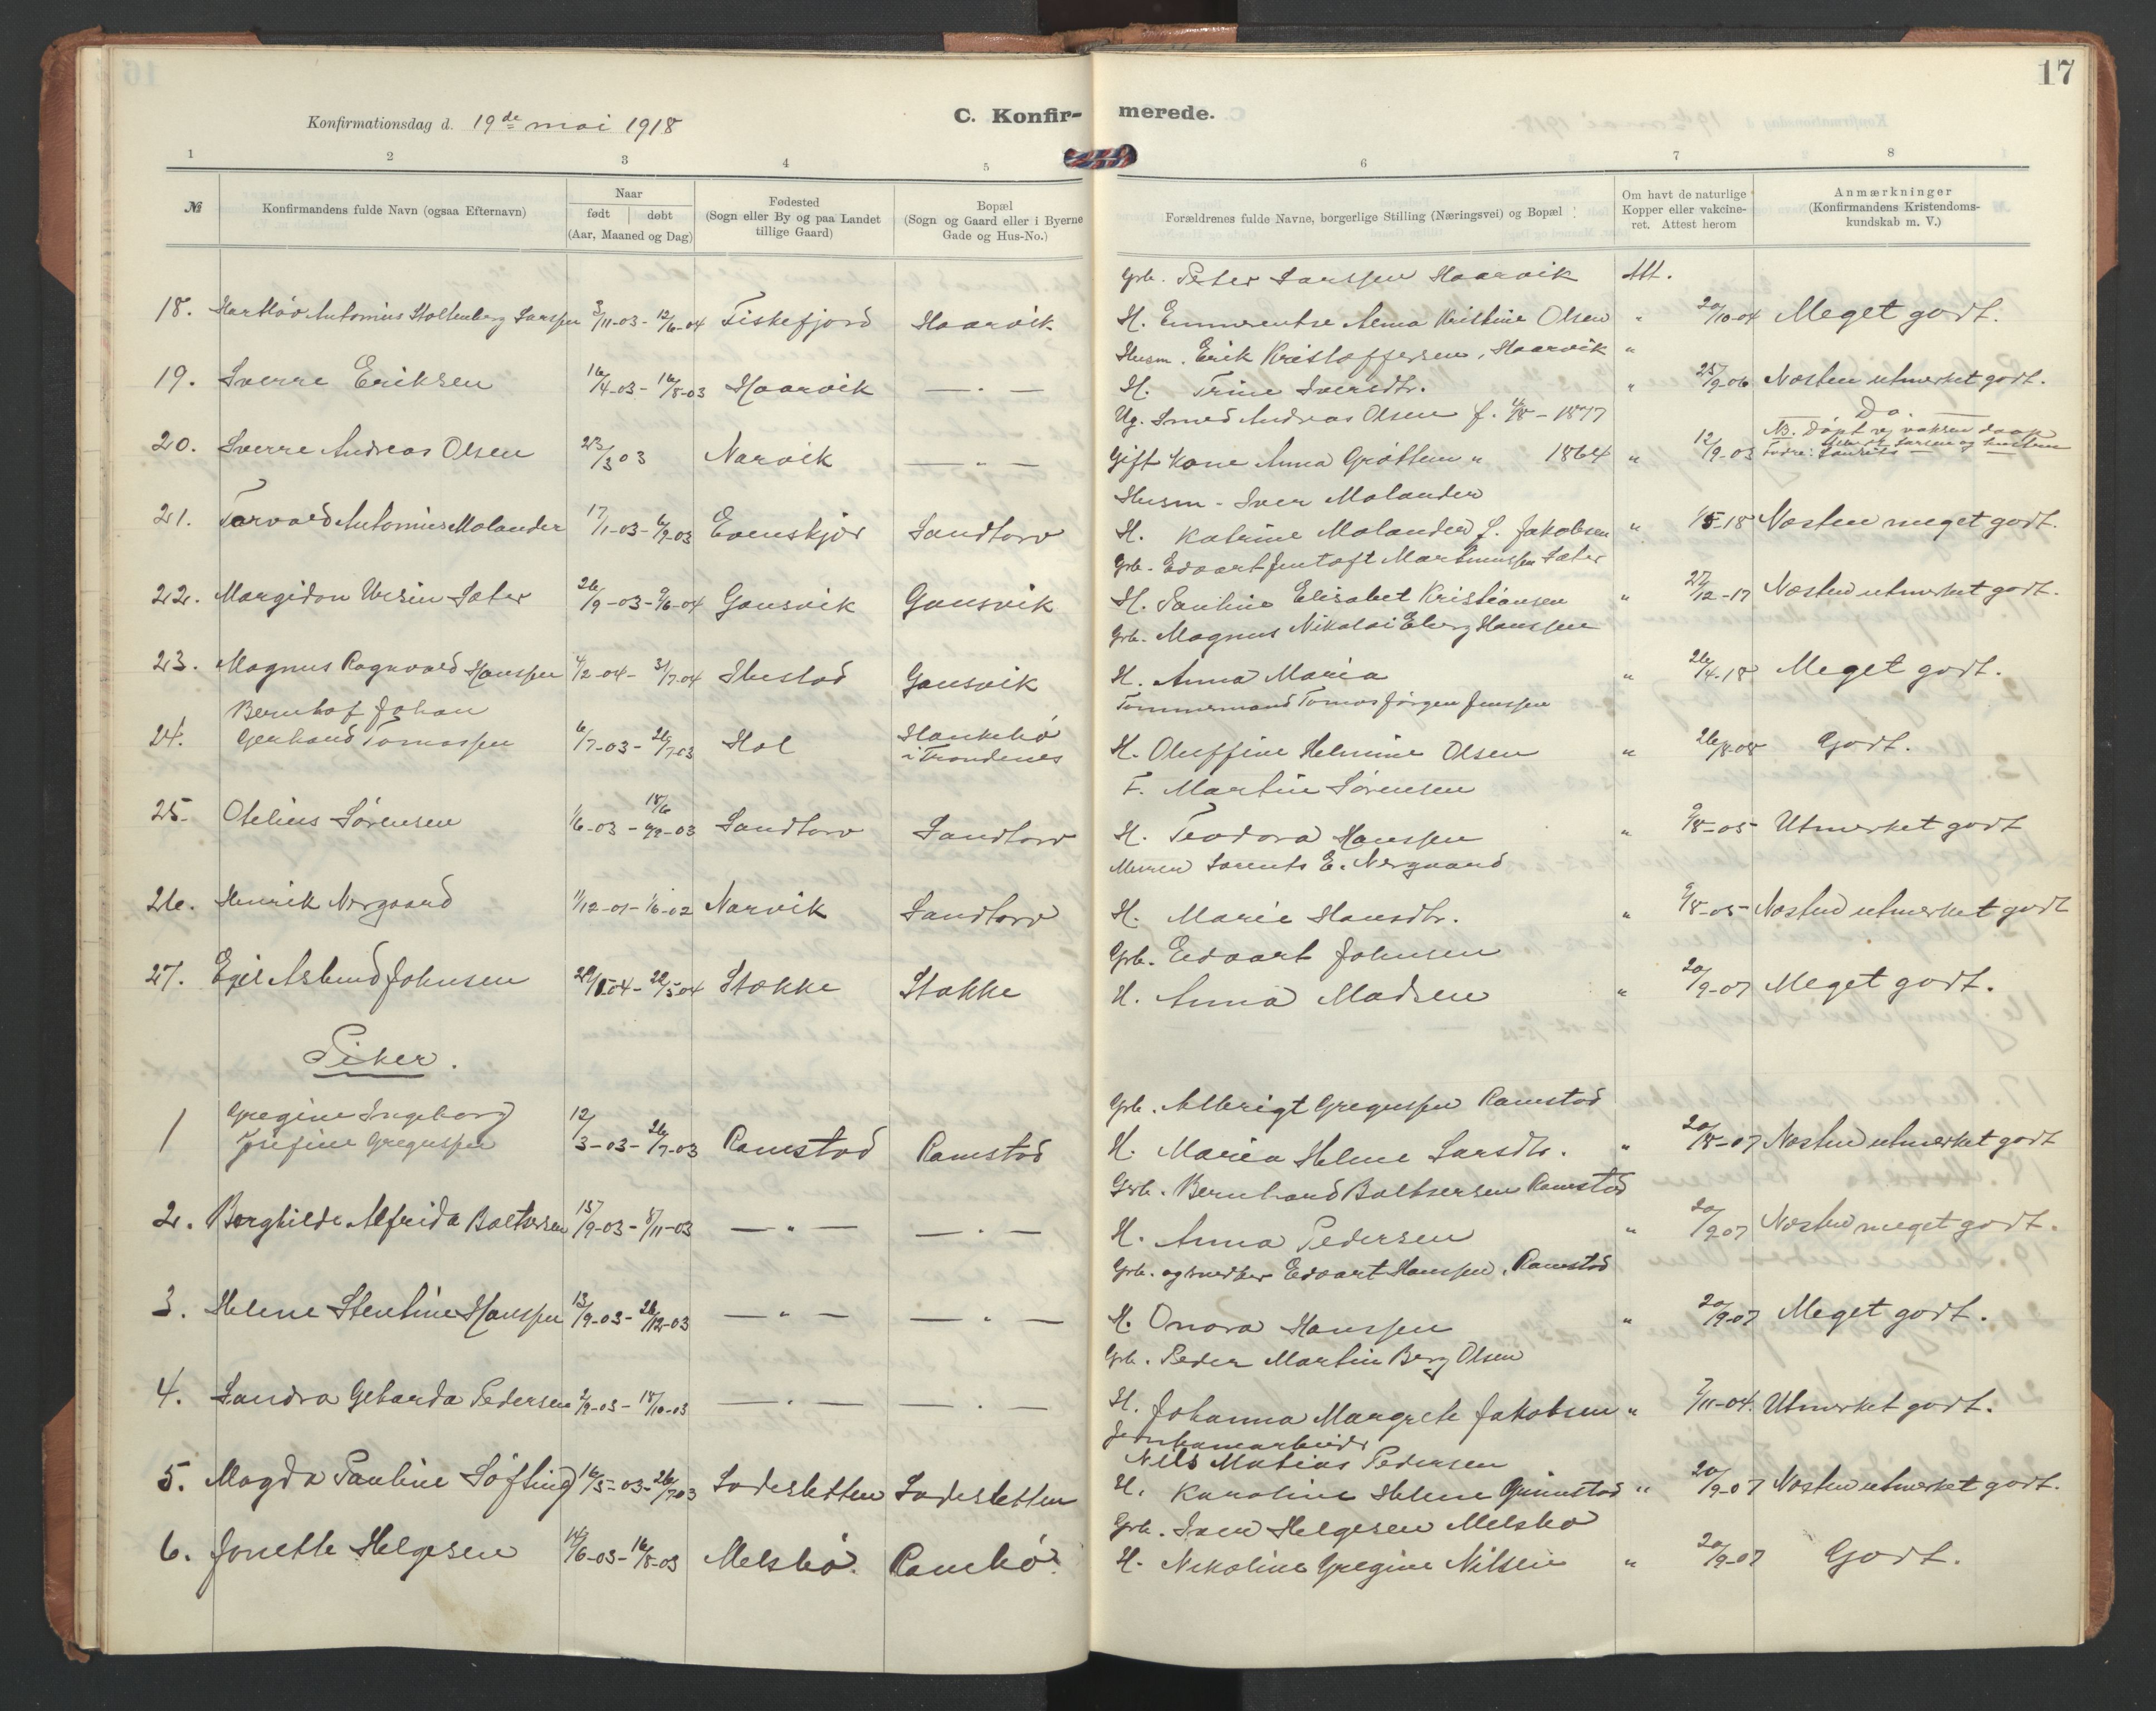 17
Konfirmationsdag d. 19de mai 1918
C. Konfir- merede.
1 2 3 4 5 6 7 8
№
Konfirmandens fulde Navn (ogsaa Efternavn)
Naar
født | døbt
(Aar, Maaned og Dag)
Fødested
(Sogn eller By og paa Landet
tillige Gaard)
Bopæl
(Sogn og Gaard eller i Byerne
Gade og Hus-No.)
Forældrenes fulde Navne, borgerlige Stilling (Næringsvei) og Bopæl
Om havt de naturlige
Kopper eller vakcine-
ret. Attest herom
Anmærkninger
(Konfirmandens Kristendoms-
kundskab m. V.)
Grb. Peter Larssen Haarvik Att.
18. Antonius Stoltenberg Larssen 3/11-03 - 12/6-04 Fiskefjord Haarvik H. Emmerentse Anna Kristine Olsen " 20/10-04 Meget godt.
Husm. Erik Kristoffersen, Haarvik "
19. Sverre Eriksen 16/4-03 - 16/8-03 Haarvik — . — H. Trine Iversdtr. " 25/9-06 Næsten utmerket godt.
Ug. Smed Andreas Olsen f. 4/8-1877 — Do. —
20. Sverre Andreas Olsen 23/3 03 Narvik — " — Gift Kone Anna Grøttem " 1864 " 12/9-03 NB. Døpt v.
Husm. Iver Molander
21. Torvald Antonius Molander 17/1-03 - 6/9-03 Evenskjer Sandtorv H. Katrine Molander f. Jakobsen " 1/5-18 Næsten meget godt.
Grb. Edvart Jentoft Martinussen Sæter
22. Margidon Ursin Sæter 26/9-03 - 9/6-04 Gausvik Gausvik H. Pauline Elisabet Kristiansen " 27/12-17 Næsten utmerket godt.
Grb. Magnus Nikolai Eberg Hanssen
23. Magnus Ragnvald Hanssen 4/2-04 - 3/7-04 Ibestad Gausvik H. Anna Maria " 26/4.18 Meget godt.
Bernhof Johan Tømmermand Tomas Jørgen Jenssen
24. Gerhard Tomassen 6/7-03 - 26/7 03 Hol
i Trondenes H. Oluffine Helmine Olsen " 26/8-08 Godt.
F. Martin Sørensen
25. Otelius Sørensen 1/6-03 - 18/6 Sandtorv Sandtorv H. Teodora Hanssen " 9/8-05 Utmerket godt
Murer Lorents E. Nergaard
26. Henrik Nergaard 11/12-01 - 1/6-02 Narvik Sandtorv H. Marie Hansdtr. " 9/8-05 Næsten utmerket godt
Grb. Edvart Johnsen
27. Egil Aslund Johnsen 20/1-04 - 22/5 04 Stokke Stokke H. Anna Madsen " 20/9-07 Meget godt.
Piker.
Gregine Ingeborg Grb. Albrigt Gregussen Ramstad
1 Josefine Gregussen 12/3-03 - 26/7-03 Ramstad Ramstad H. Maria Helene Larsdtr. " 20/8-07 Næsten utmerket godt
Grb. Bernhard Baltsersen Ramstad
2. Borghilde Alfrida Baltsersen 15/9-03 - 8/11-03 — " — — . — H. Anna Pedersen " 20/9 07 Næsten meget godt.
Grb. og snedker Edvart Hanssen, Ramstad
3. Helene Stentine Hanssen 13/9-03 - 26/12-03 — " — — " — H. Onora Hanssen " 20/9-07 Meget godt.
Grb. Peder Martin Berg Olsen
4. Sandra Geharda Pedersen 2/9-03 - 18/10-03 — . — — . — H. Johanna Margrete Jakobsen " 7/11-04. Utmerket godt.
Jernbanearbeider
Nils Matias Pedersen
5. Magda Pauline Søfting 16/5-03 - 26/7 03 Sadesletten Sadesletten H. Karoline Helene Grimstad " 20/9-07 Næsten utmerket godt.
Grb. Iver Helgesen Melsbø
6. Jonette Helgesen 14/6-03 - 16/8-03 Melsbø. Rambø. H. Nikoline Gregine Nilsen " 20/9-07 Godt.